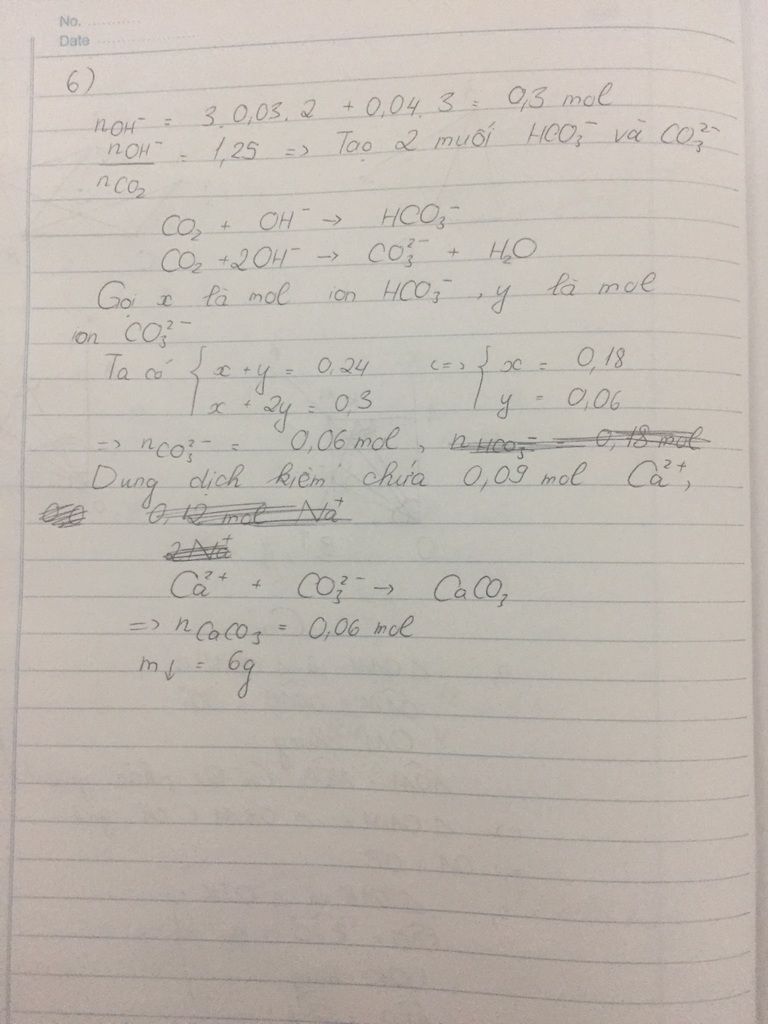 No. ............
Date ........................
6)
nOH⁻ = 3.0,03.2 + 0,04.3 = 0,3 mol
nOH⁻/nCO₂ = 1,25 => Tạo 2 muối HCO₃⁻ và CO₃²⁻
CO₂ + OH⁻ → HCO₃⁻
CO₂ + 2OH⁻ → CO₃²⁻ + H₂O
Gọi x là mol ion HCO₃⁻, y là mol
ion CO₃²⁻
Ta có { x + y = 0,24 <=> { x = 0,18
x + 2y = 0,3 y = 0,06
=> nCO₃²⁻ = 0,06 mol, nHCO₃⁻ = 0,18 mol
Dung dịch kiềm chứa 0,09 mol Ca²⁺,
0,12 mol Na⁺
2Na⁺
Ca²⁺ + CO₃²⁻ → CaCO₃
=> nCaCO₃ = 0,06 mol
m↓ = 6g